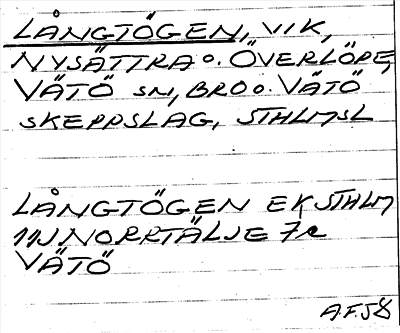 LÅNGTÖGEN, VIK,
NYSÄTTRA o. ÖVERLÖPE,
VÄTÖ SN, BRO o. VÄTÖ
SKEPPSLAG, STHLMSL
LÅNGTÖGEN EK STHLM
11J NORRTÄLJE 7c
VÄTÖ
A.F.58